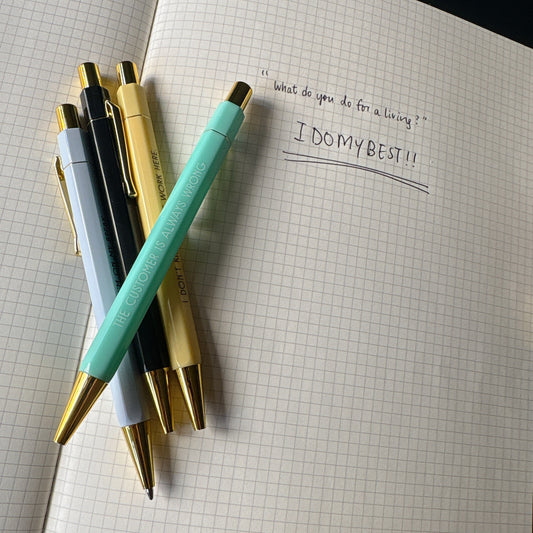 "What do you do for a living?"
I DO MY BEST!!
THE CUSTOMER IS ALWAYS WRONG
I DON'T
WORK HERE